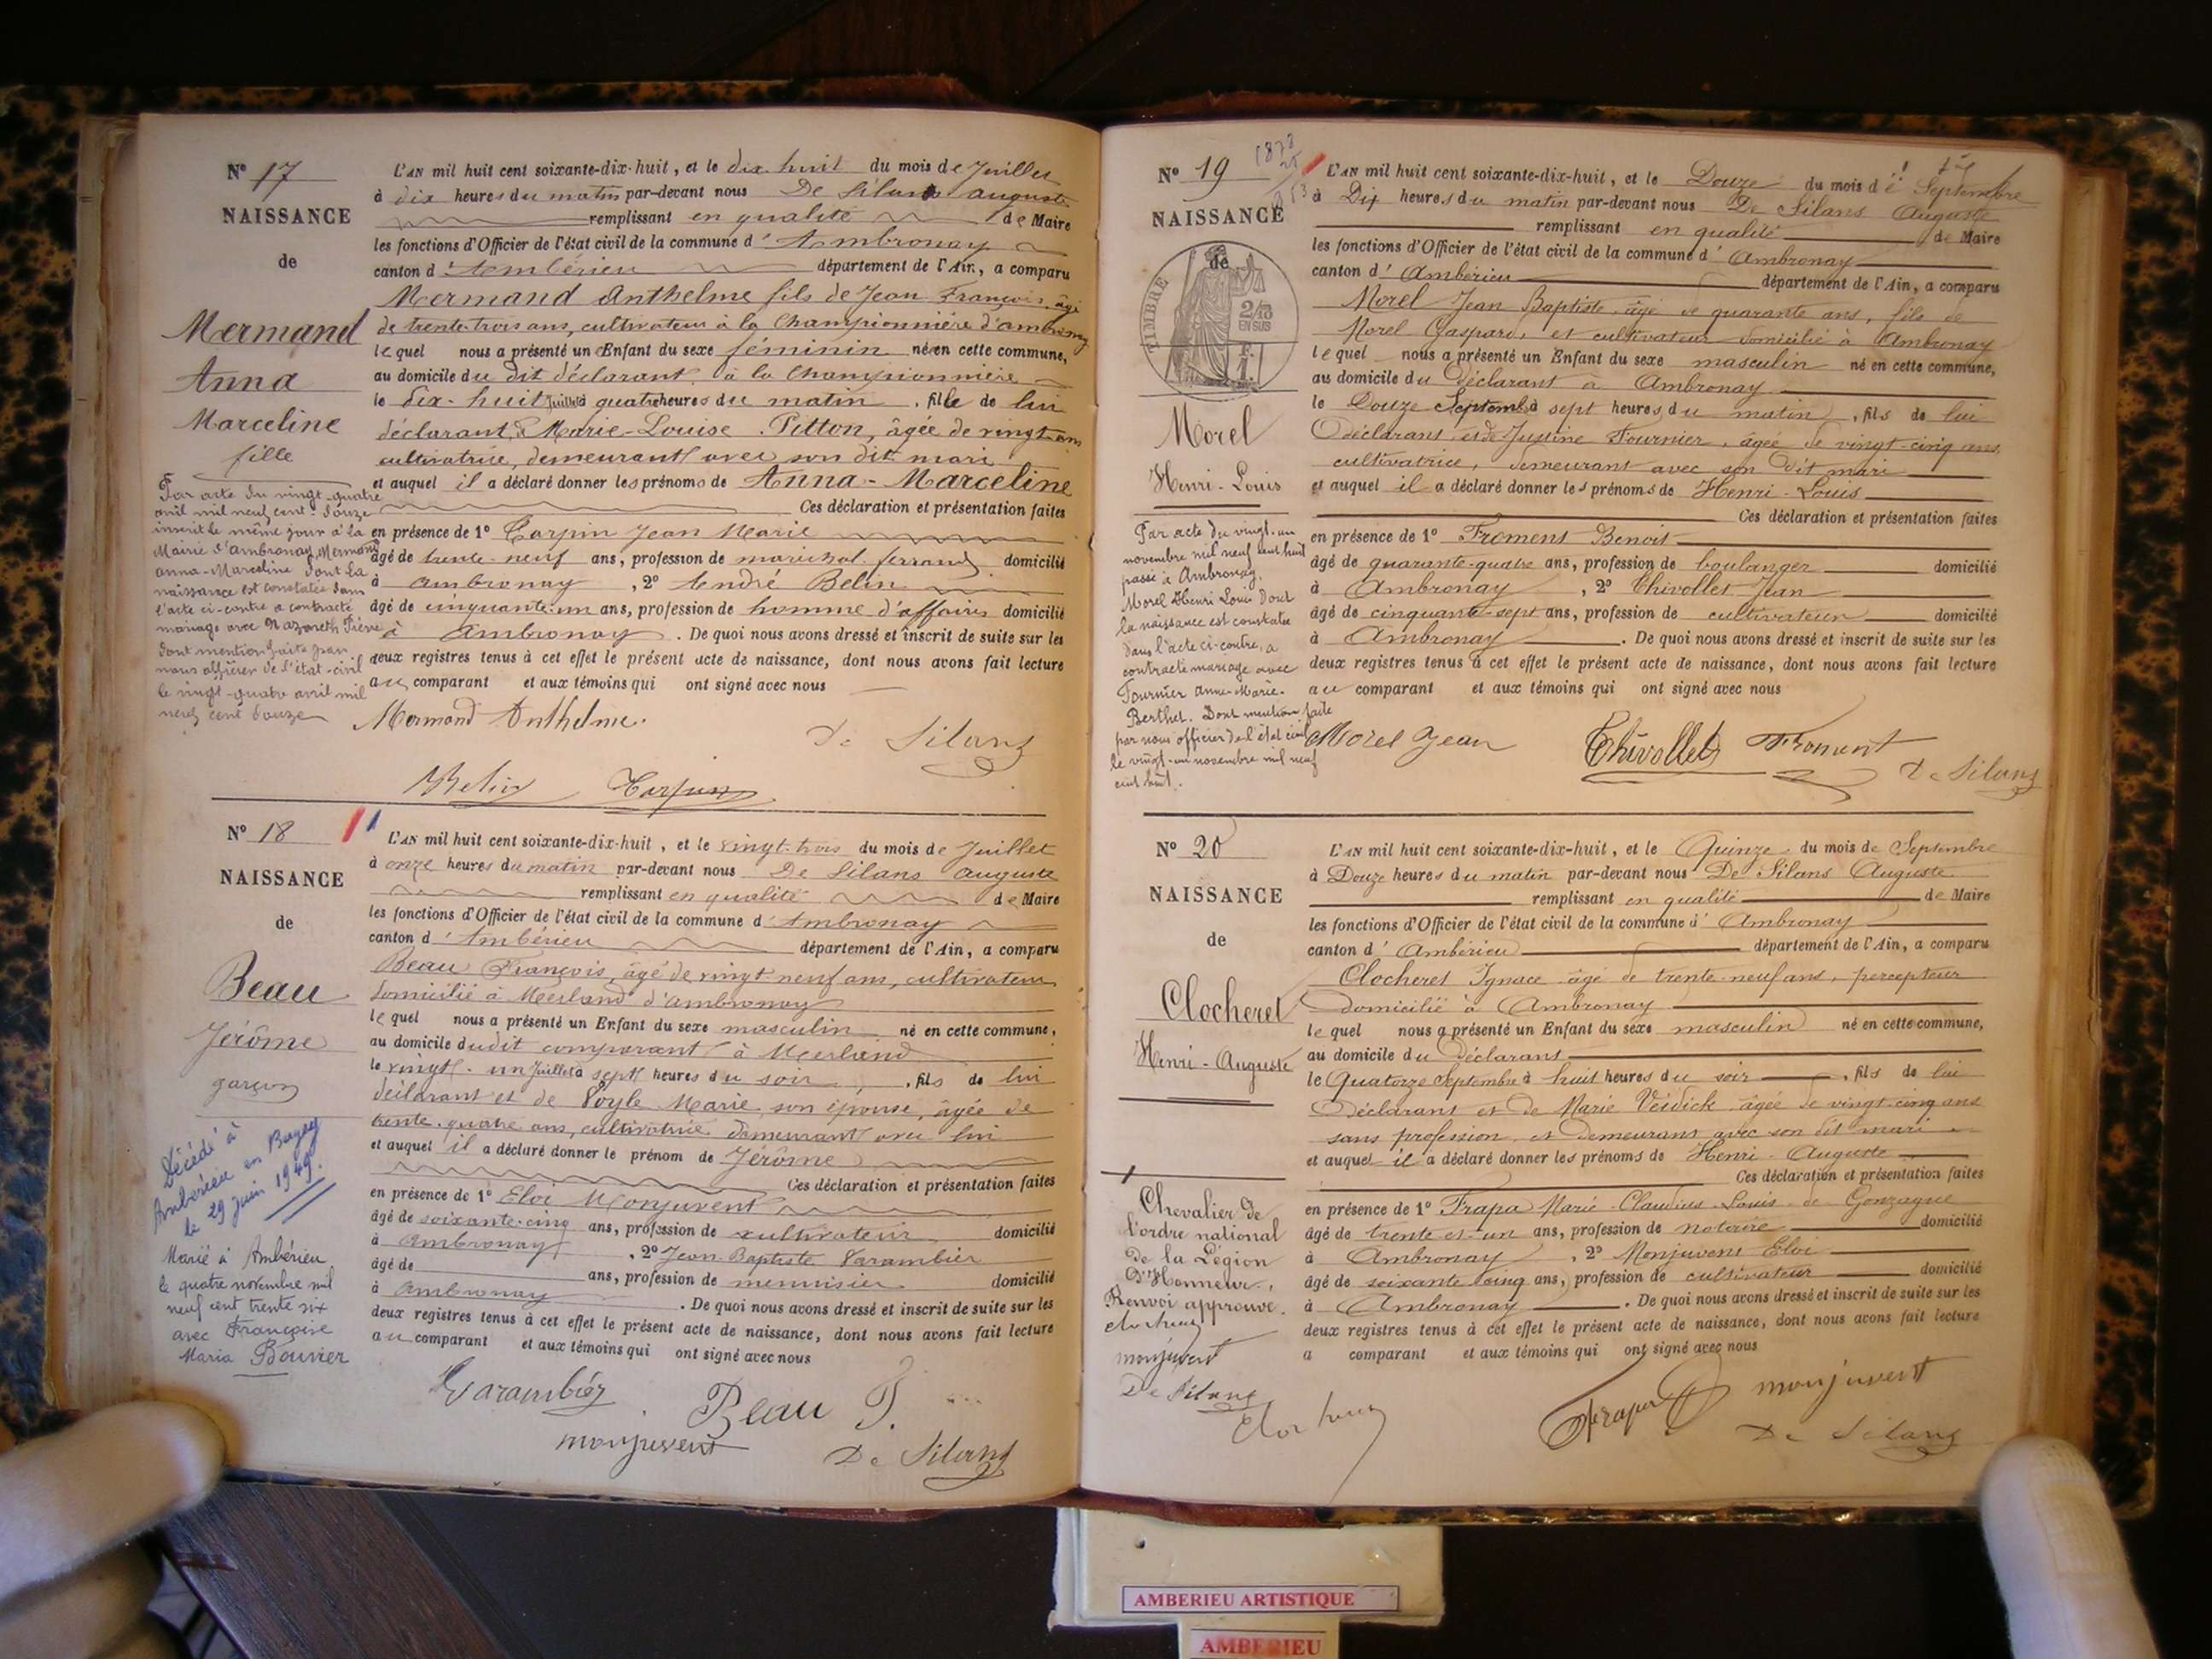 N° 17
NAISSANCE
de
Mermand
Anna
Marceline
fille
Par acte du vingt-quatre
avril mil neuf cent douze
inscrit le même jour à la
Mairie d'Ambronay, Mermand
Anna-Marceline dont la
naissance est constatée dans
l'acte ci-contre a contracté
mariage avec Nazareth
dont mention faite par
nous officier de l'état-civil
le vingt-quatre avril mil
neuf cent douze
L'AN mil huit cent soixante-dix-huit, et le dix huit du mois de Juillet
à dix heures du matin par-devant nous De Silans auguste
remplissant en qualité de Maire
les fonctions d'Officier de l'état civil de la commune d'Ambronay
canton d'Ambérieu département de l'Ain, a comparu
Mermand Anthelme fils de Jean François, âgé
de trente-trois ans, cultivateur à la Championnière d'ambronay
lequel nous a présenté un Enfant du sexe féminin né en cette commune,
au domicile du dit déclarant à la Championnière
le dix-huit Juillet à quatre heures du matin, fille de lui
déclarant, & Marie-Louise Pitton, âgée de vingt ans
cultivatrice, demeurant avec son dit mari
et auquel il a déclaré donner les prénoms de Anna-Marceline
Ces déclaration et présentation faites
en présence de 1° Carpin Jean Marie
âgé de trente-neuf ans, profession de maréchal ferrand domicilié
à ambronay, 2° André Belin
âgé de cinquante-un ans, profession de homme d'affaires domicilié
à Ambronay. De quoi nous avons dressé et inscrit de suite sur les
deux registres tenus à cet effet le présent acte de naissance, dont nous avons fait lecture
au comparant et aux témoins qui ont signé avec nous
Mermand Anthelme
De Silans
Belin Carpin
N° 18
NAISSANCE
de
Beau
Jérôme
garçon
Décédé à
Ambérieu en Bugey
le 29 juin 1949.
Marié à Ambérieu
le quatre novembre mil
neuf cent trente six
avec Françoise
Maria Bouvier
L'AN mil huit cent soixante-dix-huit, et le vingt-trois du mois de Juillet
à onze heures du matin par-devant nous De Silans auguste
remplissant en qualité de Maire
les fonctions d'Officier de l'état civil de la commune d'Ambronay
canton d'Ambérieu département de l'Ain, a comparu
Beau François, âgé de vingt neuf ans, cultivateur
domicilié à Merland d'ambronay
lequel nous a présenté un Enfant du sexe masculin né en cette commune,
au domicile dudit comparant à Merland
le vingt-un Juillet à sept heures du soir, fils de lui
déclarant et de Marie son épouse, âgée de
trente-quatre ans, cultivatrice demeurant avec lui
et auquel il a déclaré donner le prénom de Jérôme
Ces déclaration et présentation faites
en présence de 1° Eloi Monjuvent
âgé de soixante-cinq ans, profession de cultivateur domicilié
à Ambronay, 2° Jean-Baptiste Varambier
âgé de ans, profession de menuisier domicilié
à ambronay. De quoi nous avons dressé et inscrit de suite sur les
deux registres tenus à cet effet le présent acte de naissance, dont nous avons fait lecture
au comparant et aux témoins qui ont signé avec nous
Varambier
Beau
monjuvent
De Silans
N° 19
NAISSANCE
de
TIMBRE
2/10
EN SUS
Morel
Henri-Louis
Par acte du vingt-un
novembre mil neuf cent huit
passé à Ambronay,
Morel Henri Louis dont
la naissance est constatée
dans l'acte ci-contre, a
contracté mariage avec
Fournier Anne-Marie-
Berthe. Dont mention faite
par nous officier de l'état civil
le vingt-un novembre mil neuf
cent huit.
L'AN mil huit cent soixante-dix-huit, et le Douze du mois de Septembre
à Dix heures du matin par-devant nous De Silans Auguste
remplissant en qualité de Maire
les fonctions d'Officier de l'état civil de la commune d'Ambronay
canton d'Ambérieu département de l'Ain, a comparu
Morel Jean Baptiste, âgé de quarante ans, fils de
Morel Gaspard, et cultivateur domicilié à Ambronay
lequel nous a présenté un Enfant du sexe masculin né en cette commune,
au domicile du déclarant à Ambronay
le Douze Septemb. à sept heures du matin, fils de lui
déclarant et de Justine Fournier, âgée de vingt-cinq ans,
cultivatrice, demeurant avec son dit mari
et auquel il a déclaré donner les prénoms de Henri-Louis
Ces déclaration et présentation faites
en présence de 1° Froment Benoit
âgé de quarante-quatre ans, profession de boulanger domicilié
à Ambronay, 2° Thivollet Jean
âgé de cinquante-sept ans, profession de cultivateur domicilié
à Ambronay. De quoi nous avons dressé et inscrit de suite sur les
deux registres tenus à cet effet le présent acte de naissance, dont nous avons fait lecture
au comparant et aux témoins qui ont signé avec nous
Morel Jean Thivollet Froment
De Silans
N° 20
NAISSANCE
de
Clocheret
Henri-Auguste
Chevalier de
l'ordre national
de la Légion
D'Honneur,
Renvoi approuvé.
monjuvent
De Silans
L'AN mil huit cent soixante-dix-huit, et le Quinze du mois de Septembre
à Douze heures du matin par-devant nous De Silans Auguste
remplissant en qualité de Maire
les fonctions d'Officier de l'état civil de la commune d'Ambronay
canton d'Ambérieu département de l'Ain, a comparu
Clocheret Ignace âgé de trente-neuf ans, percepteur
domicilié à Ambronay
lequel nous a présenté un Enfant du sexe masculin né en cette commune,
au domicile du déclarant
le Quatorze Septembre à huit heures du soir, fils de lui
déclarant et de Marie âgée de vingt-cinq ans
sans profession et demeurant avec son dit mari
et auquel il a déclaré donner les prénoms de Henri-Auguste
Ces déclaration et présentation faites
en présence de 1° Frapa Marie-Claudius-Louis-de Gonzague
âgé de trente-et-un ans, profession de notaire domicilié
à Ambronay, 2° Monjuvent Eloi
âgé de soixante cinq ans, profession de cultivateur domicilié
à Ambronay. De quoi nous avons dressé et inscrit de suite sur les
deux registres tenus à cet effet le présent acte de naissance, dont nous avons fait lecture
a comparant et aux témoins qui ont signé avec nous
Frapa monjuvent
De Silans
AMBERIEU ARTISTIQUE
AMBERIEU